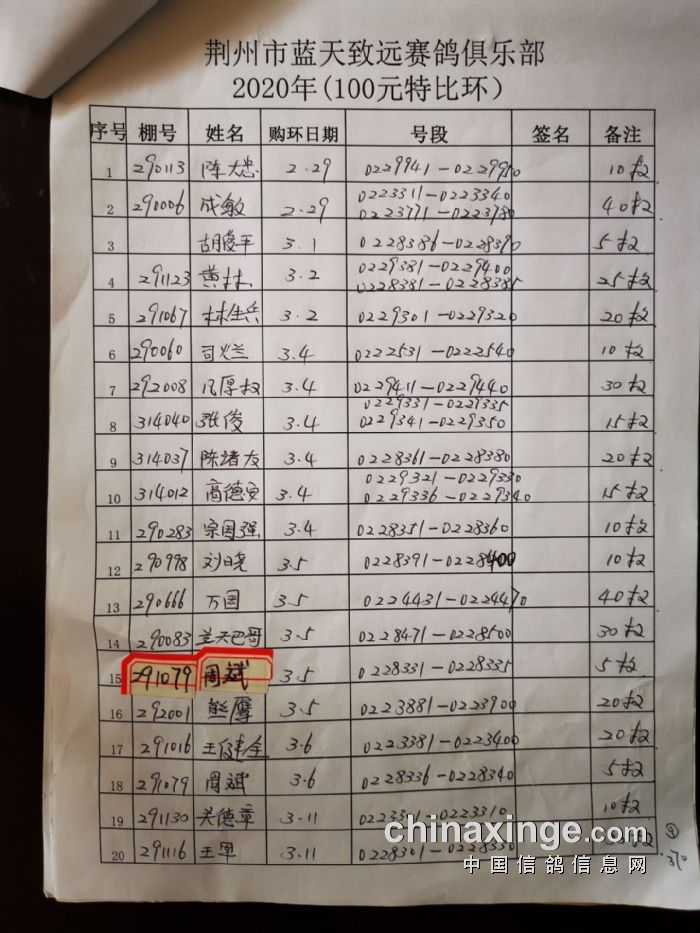 荆州市蓝天致远赛鸽俱乐部
2020年(100元特比环)
序号 棚号 姓名 购环日期 号段 签名 备注
1 290113 陈大忠 2.29 0229941-0229950 10枚
2 290006 成敏 2.29 0223311-0223340 0223771-0223780 40枚
3 胡俊平 3.1 0228386-0228390 5枚
4 291123 黄林 3.2 0229381-0229400 0228381-0228385 25枚
5 291067 林生兵 3.2 0229301-0229320 20枚
6 290060 司烂 3.4 0222531-0222540 10枚
7 292008 3.4 0229411-0229440 30枚
8 314040 张俊 3.4 0229331-0229335 0229341-0229350 15枚
9 314037 陈绪友 3.4 0228361-0228380 20枚
10 314012 高德 3.4 0229321-0229330 0229336-0229340 15枚
11 290283 宗国强 3.4 0228351-0228360 10枚
12 290998 刘晓 3.5 0228391-0228400 10枚
13 290666 万国 3.5 0224431-0224470 40枚
14 290083 兰天巴哥 3.5 0228471-0228500 30枚
15 291079 周斌 3.5 0228331-0228335 5枚
16 292001 熊鹰 3.5 0223881-0223900 20枚
17 291016 王俊全 3.6 0223381-0223400 20枚
18 291079 周斌 3.6 0228336-0228340 5枚
19 291130 关德章 3.11 0223301-0223310 10枚
20 291116 王军 3.11 0228301-0228330 枚
370
chinaxinge.com
中国信鸽信息网